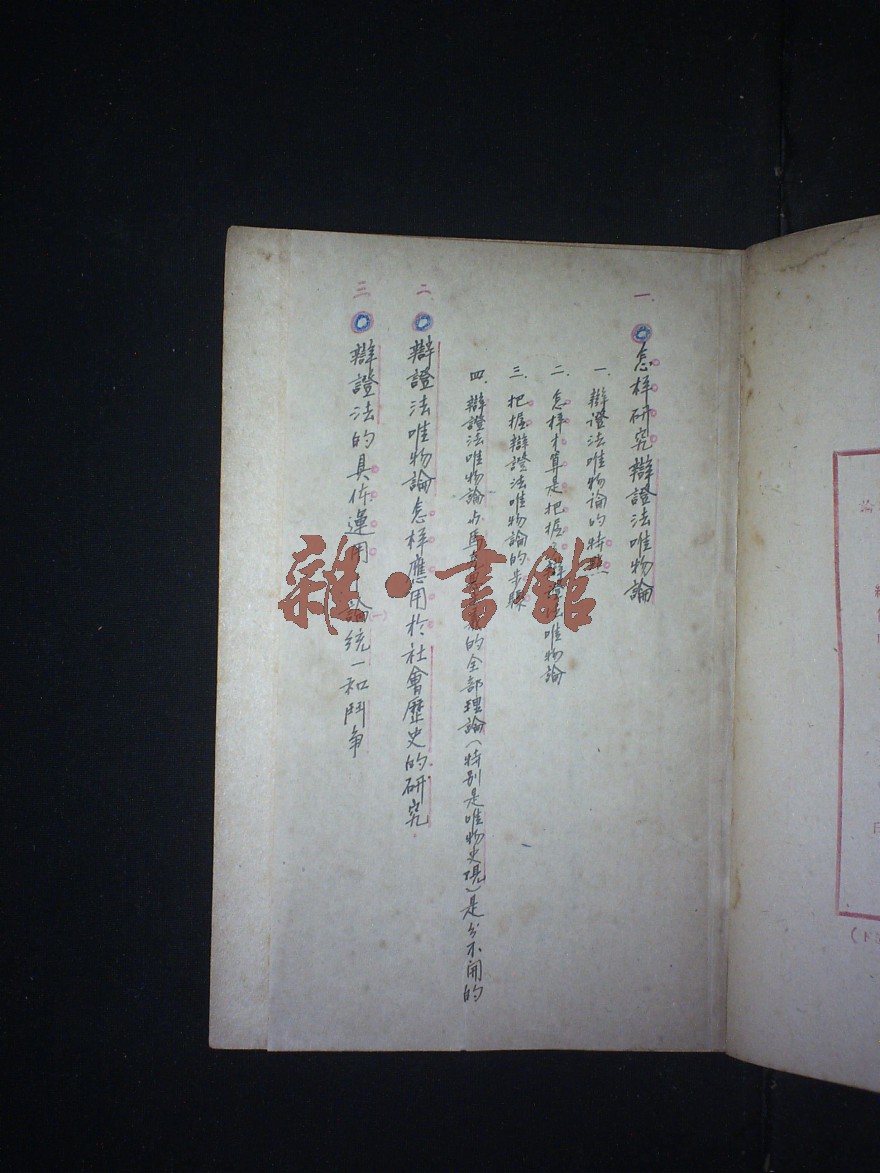 一、怎样研究辯證法唯物論
一、辯證法唯物論的特點
二、怎样才算是把握了辯證法唯物論
三、把握辯證法唯物論的步驟
四、辯證法唯物論与馬的全部理論(特别是唯物史观)是分不開的
二、辯證法唯物論怎样應用於社會歷史的研究
三、辯證法的具体運用(一)論統一和鬥争
雜·書館
論
印